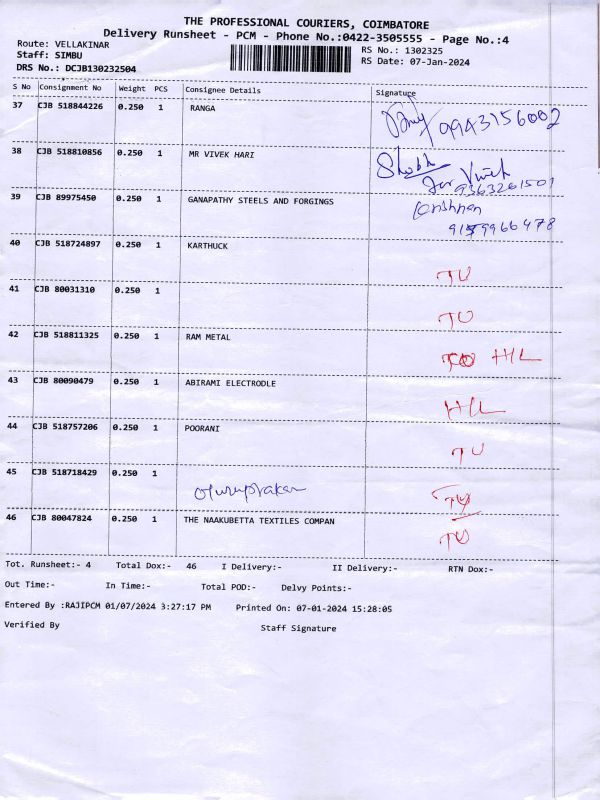 THE PROFESSIONAL COURIERS, COIMBATORE
Delivery Runsheet - PCM - Phone No.:0422-3505555 - Page No.:4
Route: VELLAKINAR RS No.: 1302325
Staff: SIMBU RS Date: 07-Jan-2024
DRS No.: DCJB130232504
S No Consignment No Weight PCS Consignee Details Signature
37 CJB 518844226 0.250 1 RANGA
38 CJB 518810856 0.250 1 MR VIVEK HARI
for Vivek
9363261501
39 CJB 89975450 0.250 1 GANAPATHY STEELS AND FORGINGS
9159966478
40 CJB 518724897 0.250 1 KARTHUCK
TU
41 CJB 80031310 0.250 1
TU
42 CJB 518811325 0.250 1 RAM METAL
H/L
43 CJB 80090479 0.250 1 ABIRAMI ELECTRODLE
H/L
44 CJB 518757206 0.250 1 POORANI
TU
45 CJB 518718429 0.250 1
46 CJB 80047824 0.250 1 THE NAAKUBETTA TEXTILES COMPAN
TU
Tot. Runsheet:- 4 Total Dox:- 46 I Delivery:- II Delivery:- RTN Dox:-
Out Time:- In Time:- Total POD:- Delvy Points:-
Entered By :RAJIPCM 01/07/2024 3:27:17 PM Printed On: 07-01-2024 15:28:05
Verified By Staff Signature